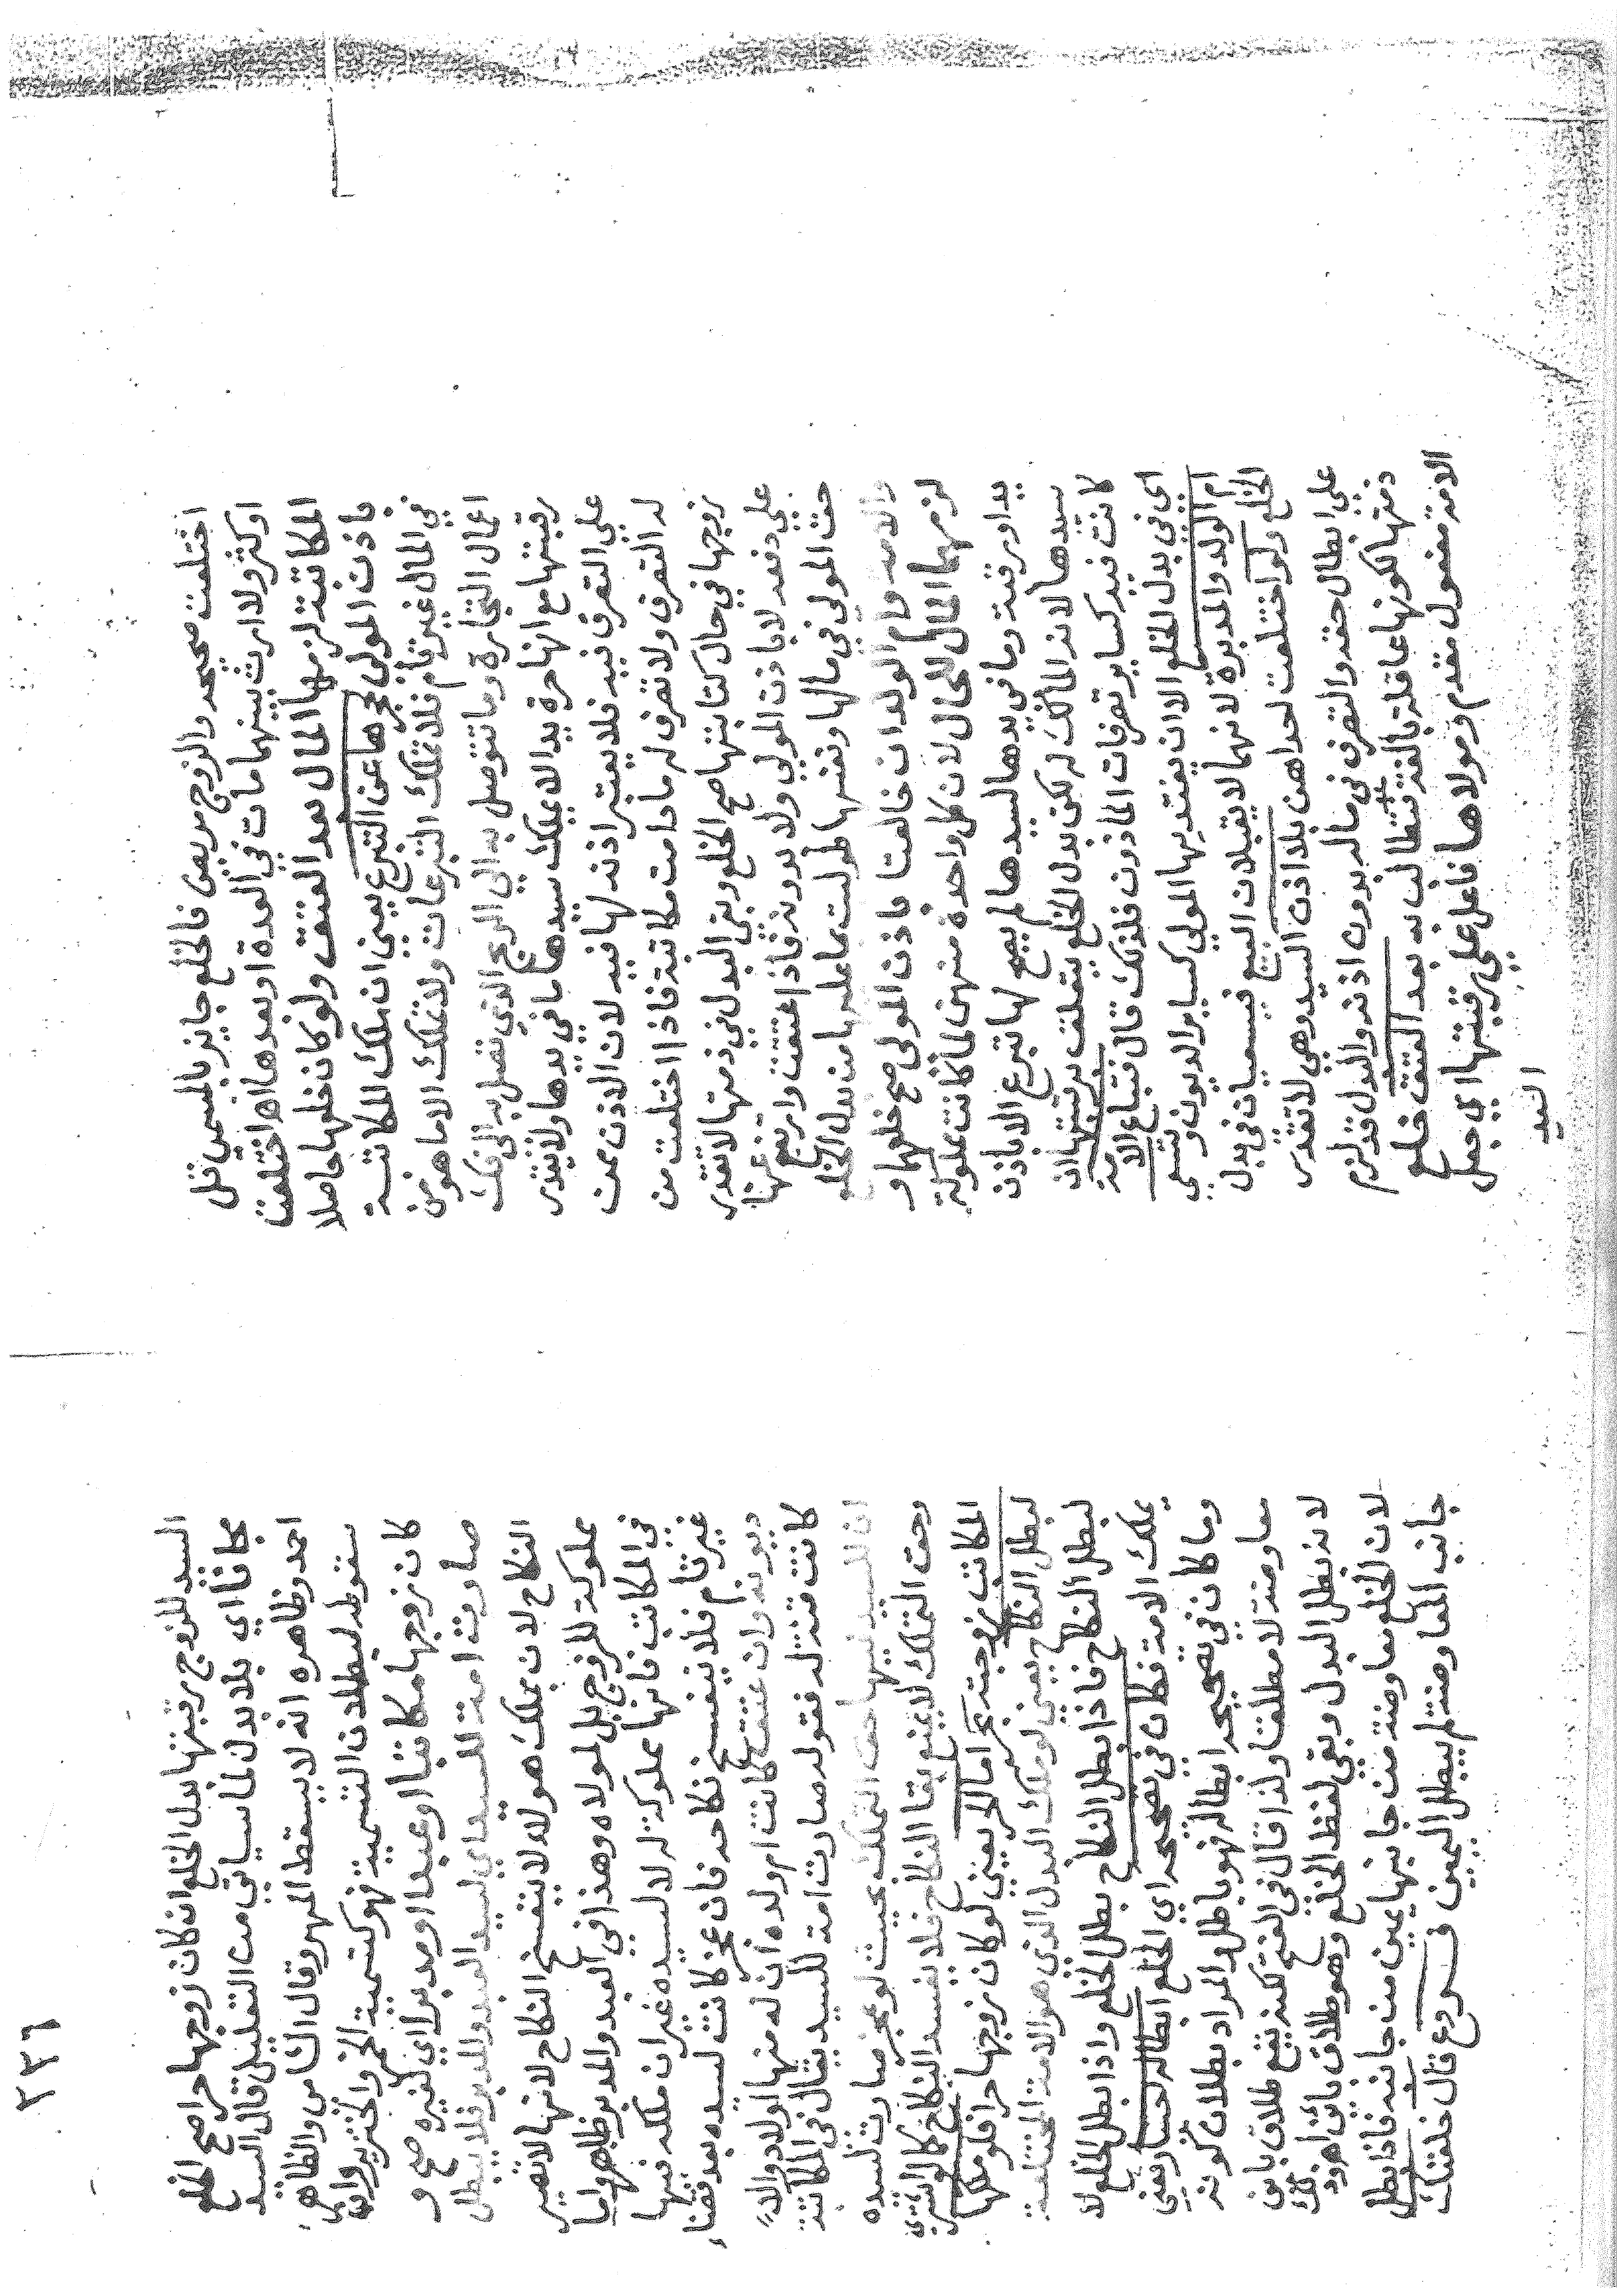 اختلعت صحيحه والزوج مريض فالخلع جايز بالمسمي قل
اوكثر ولا ارث بينهما مات في العدة او بعدها اهـ اختلعت
المكاتبة لزمها المال بعد العتق ولو كان خلعها حاملا
باذن المولي لحجرها عن التبرع يعني ان ملك المكاتبة
في المال غير تام فلا تملك التبرعات ولا تملك الا ما هو من
اعمال التجارة وما تتوصل به الي الربح الذي تصل به الي فك
رقبتها مع انها حرة يدا لا يملك سيدها ما في يدها ولا يقدر
علي التصرف فيه فلا يعتبر اذنه لها فيه لان الاذن ممن
له التصرف ولا تصرف له ما دامت مكاتبة فاذا اختلعت من
زوجها في حال كتابتها صح الخلع وبقي البدل في ذمتها لا تقدر
علي دفعه لا باذن المولي ولا بدونه فاذا اعتقت وارتفع عنها
حق المولي في مالها ونفسها طولبت بما عليها من بدل الخلع
والامة وام الولد ان خالعتا باذن المولى صح خلعهما و
لزمهما المال للحال لان كل واحدة منهن لما كانت مملوكة
يدا ورقبة وما في يدها لسيدها لم يصح لها تبرع الا باذن
سيدها لانه المالك له لكن بدل الخلع يتعلق برقبتها ان
كانت فنه كساير تصرفات الماذون فلذلك قال فتباع الامة
اي في بدل الخلع الا ان يفتديها المولي كساير الديون وتسعي
ام الولد والمدبرة لانهما لا يقبلان البيع فيسعيان في بدل
الخلع ولو اختلعت احداهن بلا اذن السيد وهي لا تقدر
علي ابطال حقه والتصرف في ماله بدون اذنه والبدل قد لزم
ذمتها لكونها عاقلة بالغة تطالب به بعد العتق خلع
الامة مفعول مقدم ومولاها فاعل علي رقبتها اي جعل
السيد
٢٣٦
السيد للزوج رقبتها بدل الخلع ان كان زوجها حرا صح الخلع
مجانا اي بلا بدل لما سياتي من التعليل قال السيد
احمد وظاهره انه لا يسقط المهر وقال الشامي والظاهر
سقوطه لبطلان التسمية فهو كتسمية الخمر والخنزير وان
كان زوجها مكاتبا او عبدا او مدبرا اي لغيره صح و
صارت امة للسيد اي لسيد العبد والمدبر فلا يبطل
النكاح لان بملك هولاء لا ينفسخ النكاح لانها لا تصير
مملوكة للزوج بل لمولاه وهذا في العبد والمدبر ظاهر واما
في المكاتب فانها مملوكة له لا لسيده غير ان ملكه فيها
غير تام فلا ينفسخ نكاحه فان عجز كانت لسيده بعد قضاء
ديونه وان عتق كانت ام ولده ان له منها اولاد والا
كانت قنة له فقوله صارت امة للسيد يقال في المكاتبة
ان للسيد فيها حق التملك بحيث لو عجز صارت لسيده
وحق التملك لا يمنع بقا النكاح فلا يفسد النكاح كما لو اشتري
المكاتب زوجته بحر اما الحر يعني لو كان زوجها حرا فلو ملكها
لبطل النكاح يعني لو ملك البدل الذي هو الامة المختلعة
لبطل النكاح فاذا بطل النكاح بطل الخلع واذا بطل الخلع لا
يملك الامة فكان في تصحيحه اي الخلع ابطاله اختيار يعني
وما كان في تصحيحه ابطاله فهو باطل والمراد بطلان كونه
معاوضة لا مطلقا ولذا قال في الفتح لكنه يقع طلاق باين
لانه بطل البدل وبقي لفظ الخلع وهو طلاق باين اهـ
لان الخلع معاوضة من جانبها يمين من جانبه فاذا بطل
جانب المعاوضة لم يبطل اليمين فــروع قال خلعتك